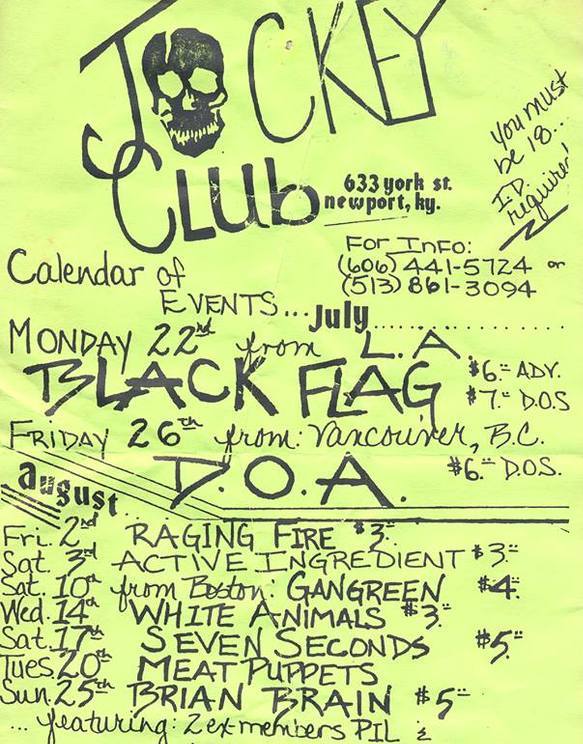 JOCKEY
CLUB
633 york st.
newport, ky.
You must
be 18..
I.D.
required!
For Info:
(606) 441-5724 or
(513) 861-3094
Calendar of
EVENTS... July.............
MONDAY 22nd from L.A.
BLACK FLAG
$6.– ADV.
$7.– D.O.S
FRIDAY 26th from: Vancouver, B.C.
D.O.A. $6.– D.O.S.
august
Fri. 2nd RAGING FIRE $3.–
Sat. 3rd ACTIVE INGREDIENT $3.–
Sat. 10th from Boston: GANGREEN $4.–
Wed. 14th WHITE ANIMALS $3.–
Sat. 17th SEVEN SECONDS $5.–
Tues. 20th MEAT PUPPETS
Sun. 25th BRIAN BRAIN $5–
... featuring: 2 ex-members PIL